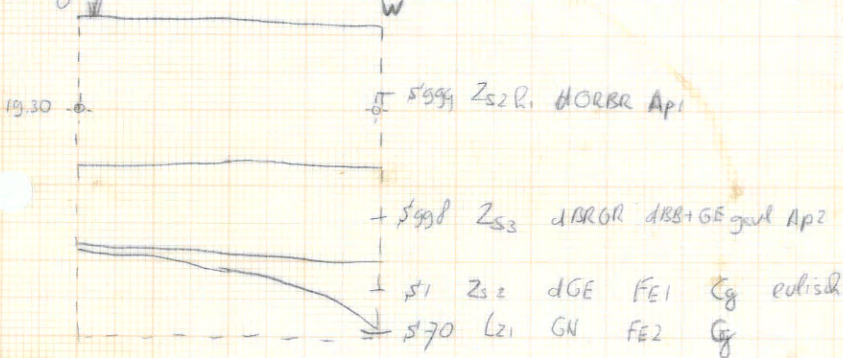 W
19.30 S999 Zs2h1 dORBR Ap1
S998 Zs3 dBRGR dBB+GE gevl Ap2
S1 Zs2 dGE FE1 Cg eolisch
S70 Lz1 GN FE2 Cg